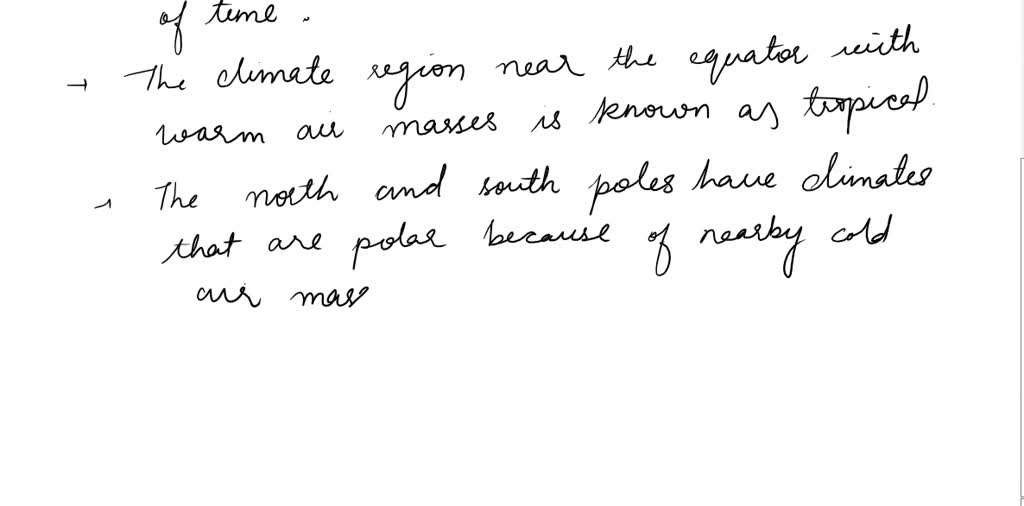 of time.
→ The climate region near the equator with
warm air masses is known as tropical.
→ The north and south poles have climates
that are polar because of nearby cold
air mas